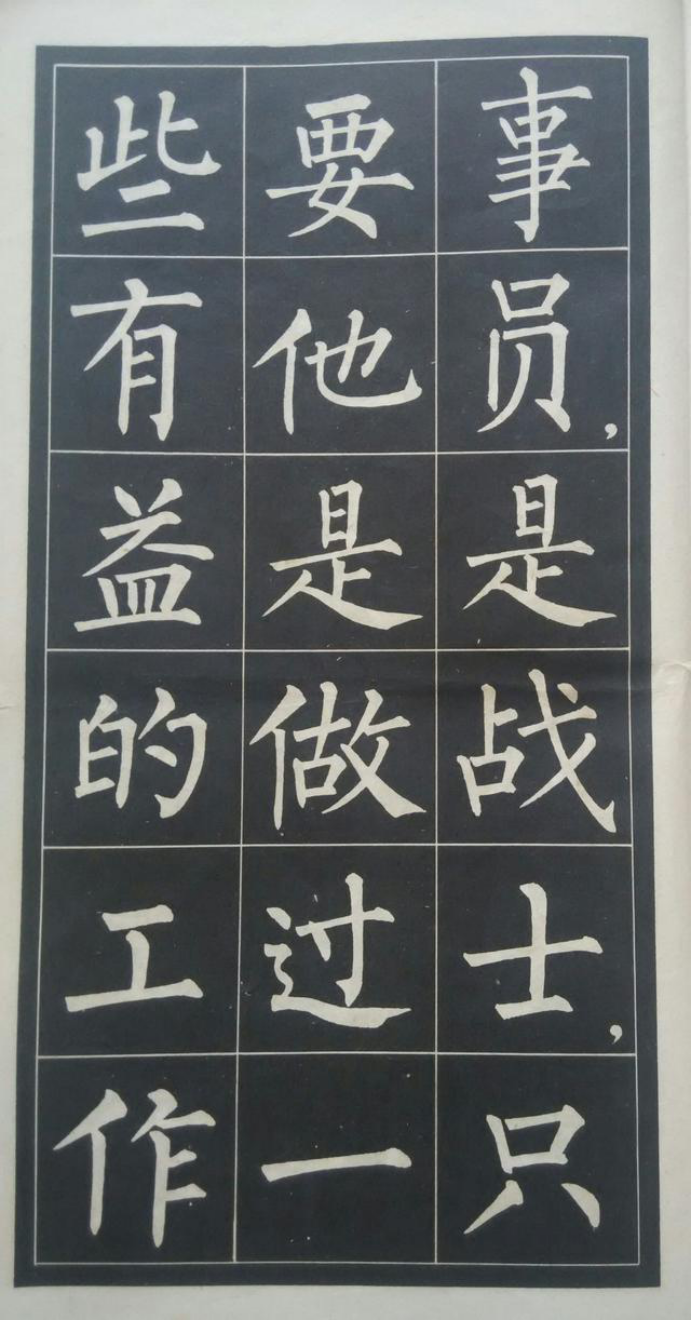 事员，是战士，只
要他是做过一
些有益的工作